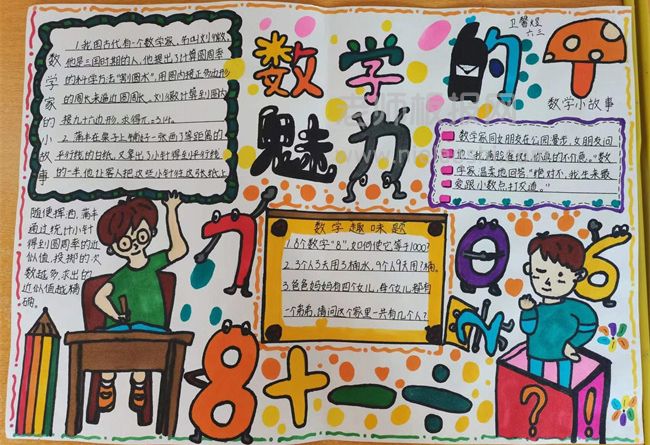 数学的
魅力
卫馨煜
六三
数学家的小故事
1.我国古代有一个数学家,名叫刘徽,
他是三国时期的人,他提出了计算圆周率
的科学方法"割圆术",用圆内接正多边形
的周长来逼近圆周长,刘徽计算到圆内
接九十六边形,求得π≈3.14。
2.蒲丰在桌子上铺好一张画了等距离的
平行线的白纸,又拿出了小针得到平行线
的一半,他让客人把这些小针往这张纸上
随便挥洒,蒲丰
通过统计小针
得到圆周率的近
似值,投掷的次
数越多,求出的
近似值越精
确。
数学小故事
数学家同女朋友在公园漫步,女朋友问
他"我满脸雀斑,你真的不介意。"数
学家温柔地回答"绝对不,我生来最
爱跟小数点打交道。"
数学趣味题
1.8个数字"8",如何使它等于1000?
2.3个人3天用3桶水,9个人9天用?桶。
3.爸爸妈妈有四个女儿,每个女儿都有
一个弟弟,请问这个家里一共有几个人?
7
0
6
2
8+-÷
?
!